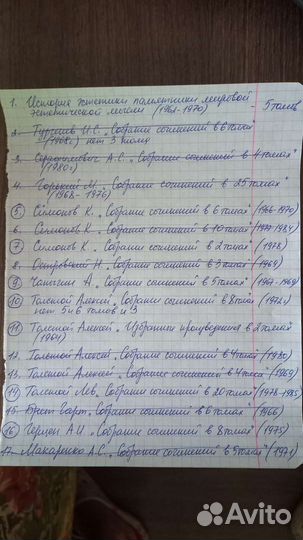 1. История эстетики памятники мировой
эстетической мысли (1961-1970) - 5 томов
2. Тургенев И.С. „Собрание сочинений в 6 томах"
(1968г.) нет 3 тома
3. А.С. „Собрание сочинений в 4 томах"
(1980г)
4. Горький М. „Собрание сочинений в 25 томах"
(1968-1976)
5 Симонов К. „Собрание сочинений в 6 томах" (1966-1970)
6. Симонов К. „Собрание сочинений в 10 томах"
7 Симонов К. „Собрание сочинений в 2 томах" (1978)
8. Островский Н. „Собрание сочинений в 3 томах" (1969)
9 Чапыгин А. „Собрание сочинений в 5 томах" (1967-1969)
10 Толстой Алексей „Собрание сочинений в 8 томах" (1972г)
нет 5 и 6 томов и 3
11. Толстой Алексей. „Избранные произведения в 2 томах"
12. Толстой Алексей „Собрание сочинений в 4 томах" (1980)
13. Толстой Алексей „Собрание сочинений в 4 томах" (1969)
14 Толстой Лев. „Собрание сочинений в 20 томах" (1978-1985)
15. Брет Гарт. „Собрание сочинений в 6 томах" (1966)
16 Герцен А.И. „Собрание сочинений в 8 томах" (1975)
17. Макаренко А.С. „Собрание сочинений в 5 томах" (1971)
Avito